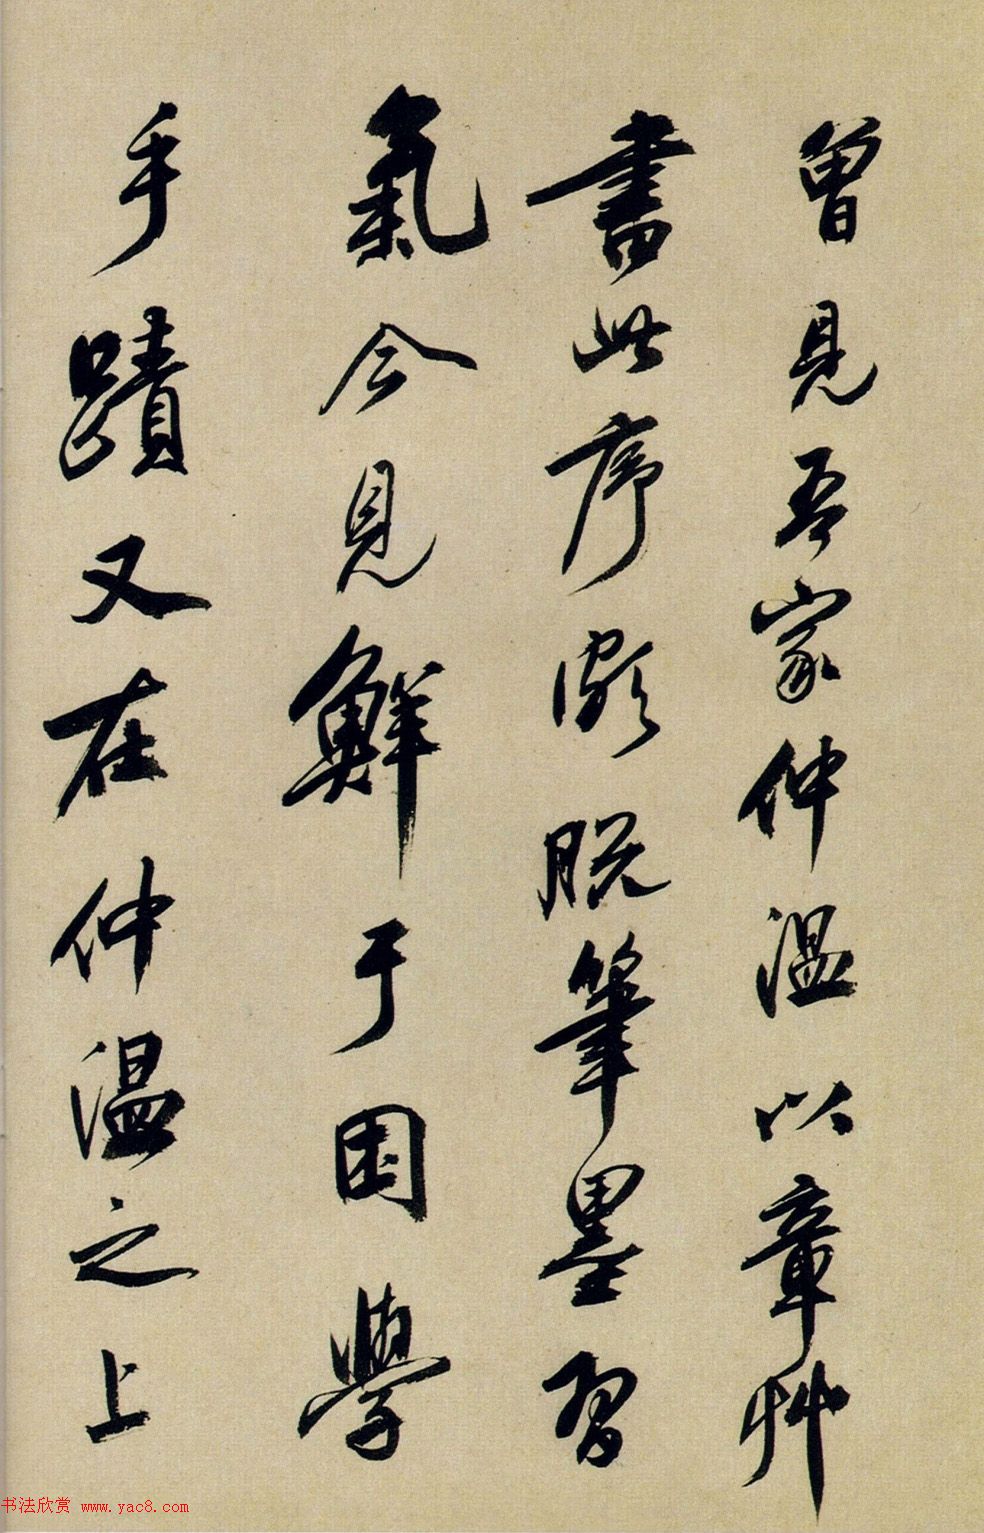 曾見吾家仲溫以章艸
書此序頗脫筆墨習
氣今見鮮于困學
手蹟又在仲溫之上
书法欣赏 www.yac8.com